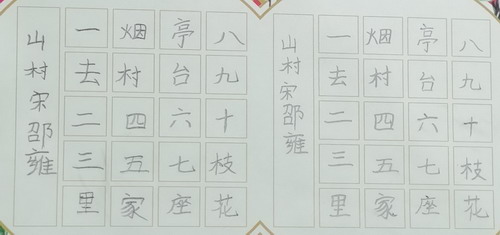 山村宋邵雍
一去二三里
烟村四五家
亭台六七座
八九十枝花
山村宋邵雍
一去二三里
烟村四五家
亭台六七座
八九十枝花